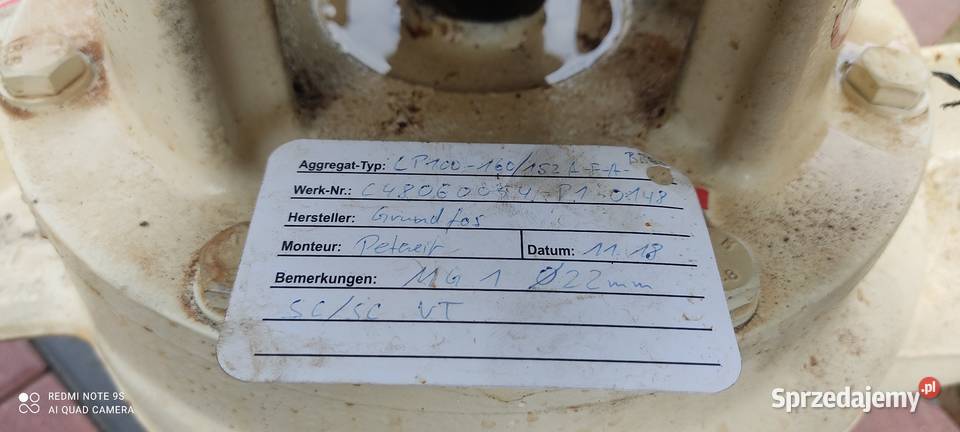 Aggregat-Typ: LP100-160/152 A-F-A-
Werk-Nr.: C48060044-P1 0148
Hersteller: Grundfos
Monteur:
Datum: 11.18
Bemerkungen: MG 1 Ø22mm
SC/SC VT
REDMI NOTE 9S
AI QUAD CAMERA
Sprzedajemy.pl